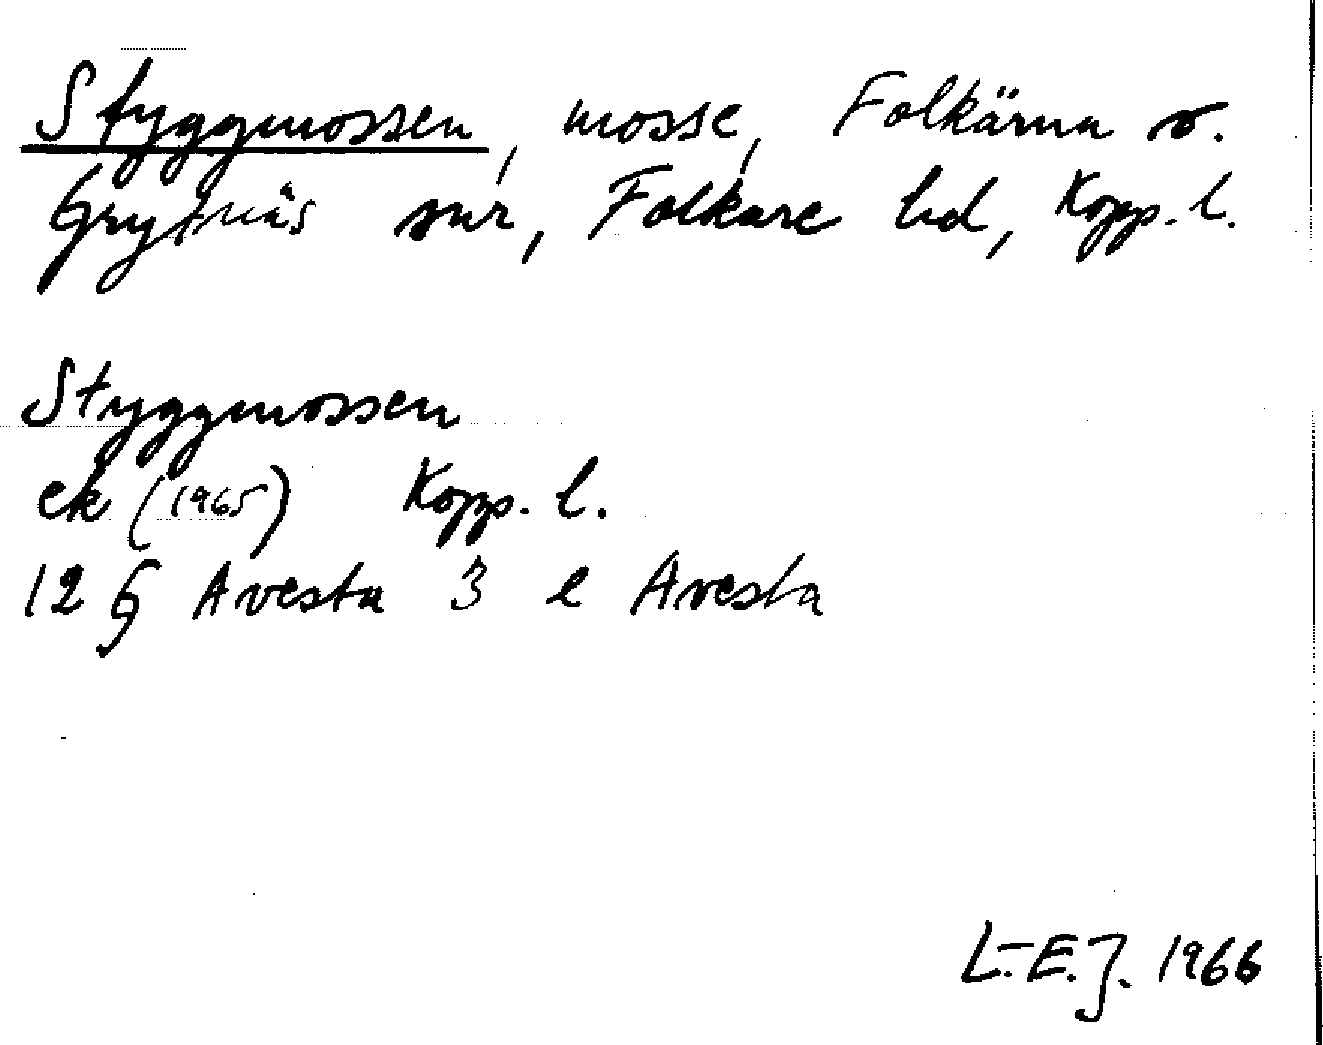 Styggmossen, mosse, Folkärna o.
Grytnäs snr, Folkare hd, Kopp. l.
Styggmossen
ek (1965) Kopp. l.
12 G Avesta 3 e Avesta
L-E.J. 1966